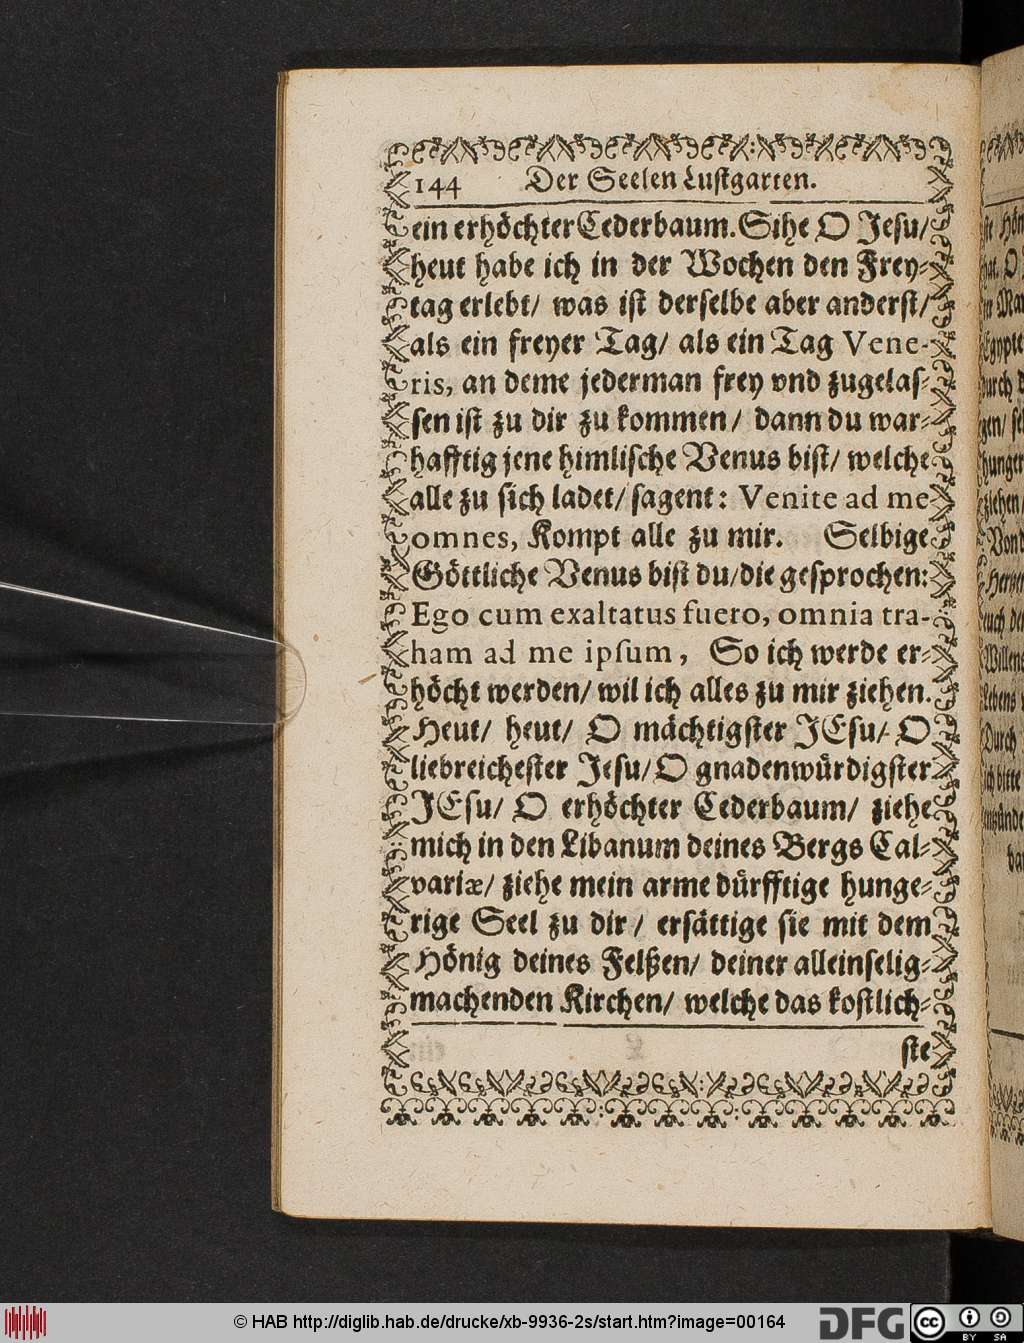 144 Der Seelen Lustgarten.
ein erhöchter Cederbaum. Sihe O Jesu/
heut habe ich in der Wochen den Frey-
tag erlebt/ was ist derselbe aber anderst/
als ein freyer Tag/ als ein Tag Vene-
ris, an deme jederman frey vnd zugelas-
sen ist zu dir zu kommen/ dann du war-
hafftig jene himlische Venus bist/ welche
alle zu sich ladet/ sagent: Venite ad me
omnes, Kompt alle zu mir. Selbige
Göttliche Venus bist du/ die gesprochen:
Ego cum exaltatus fuero, omnia tra-
ham ad me ipsum, So ich werde er-
höcht werden/ wil ich alles zu mir ziehen.
Heut/ heut/ O mächtigster JEsu/ O
liebreichester Jesu/ O gnadenwürdigster
JEsu/ O erhöchter Cederbaum/ ziehe
mich in den Libanum deines Bergs Cal-
variæ/ ziehe mein arme dürfftige hunge-
rige Seel zu dir/ ersättige sie mit dem
Hönig deines Felßen/ deiner alleinselig-
machenden Kirchen/ welche das kostlich-
ste
© HAB http://diglib.hab.de/drucke/xb-9936-2s/start.htm?image=00164
DFG
cc BY SA